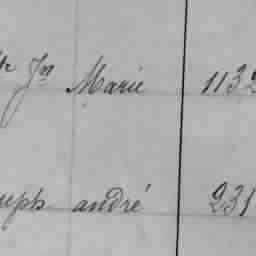 Jn Marie 1132
andré 231